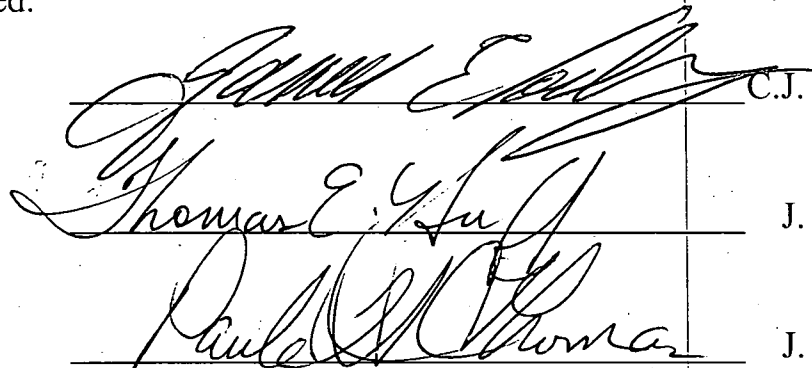 ed.
James E. C.J.
Thomas E. J.
Paula Thomas J.